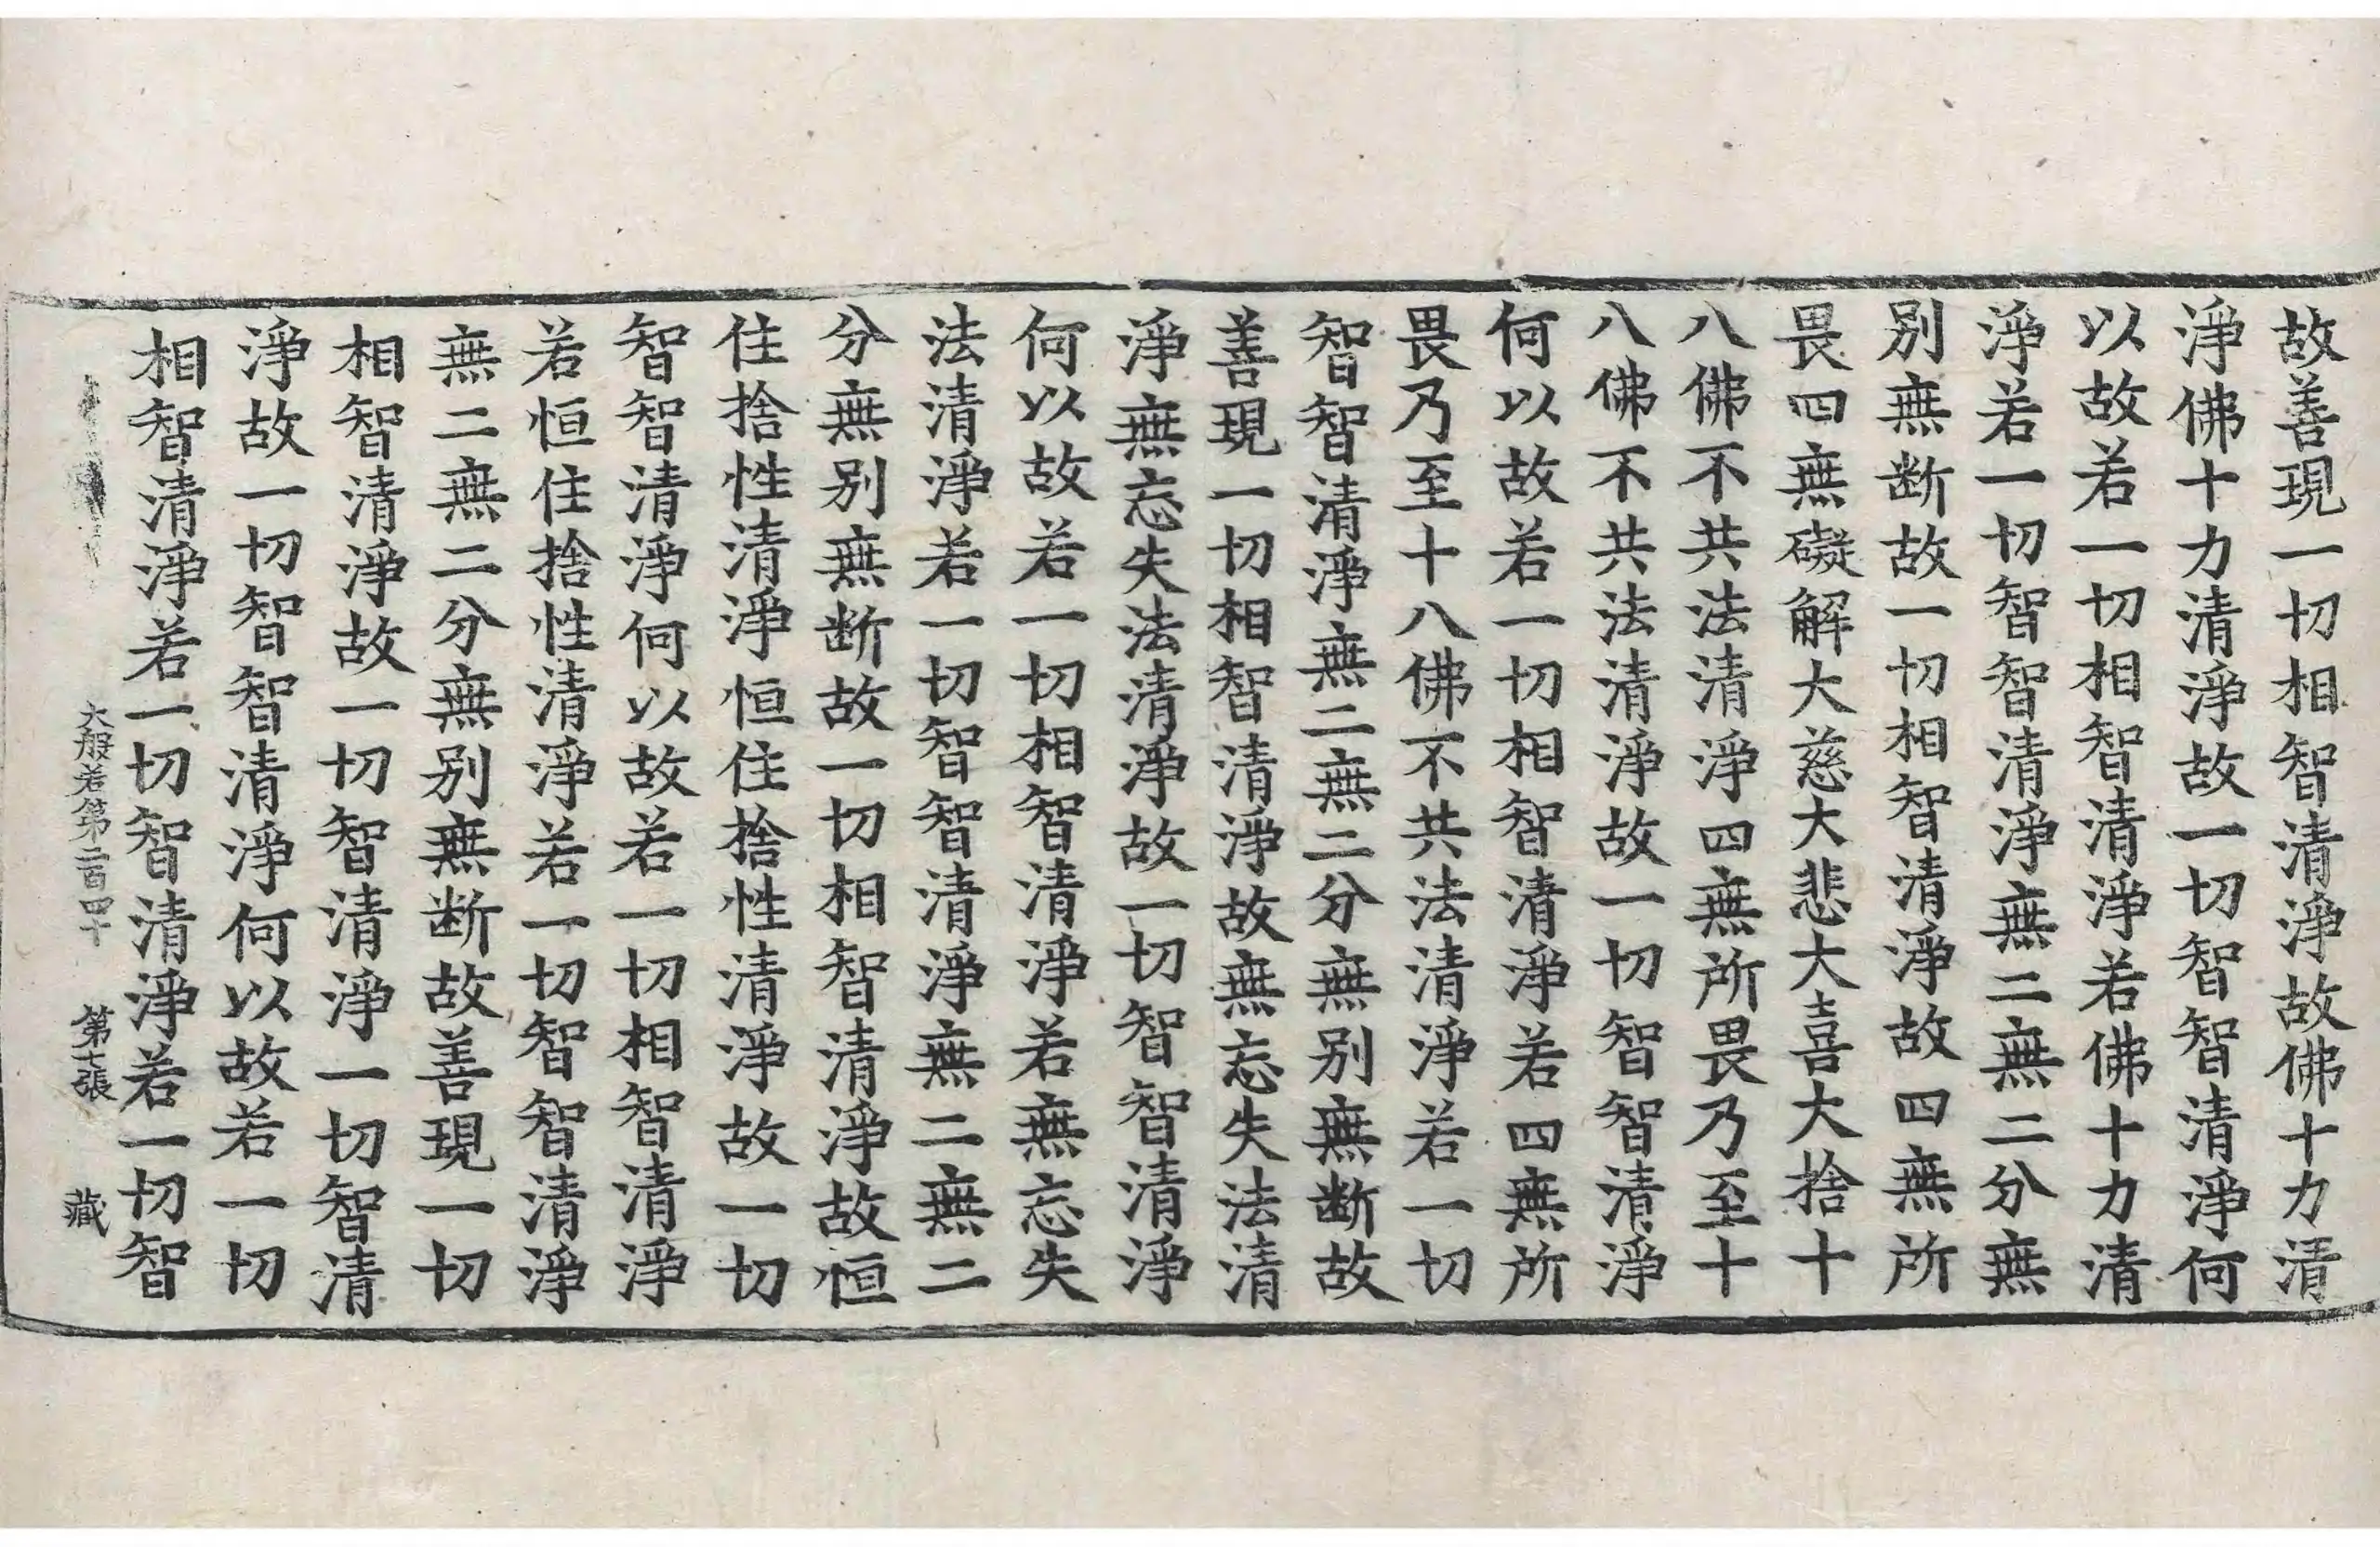 故善現一切相智清淨故佛十力清
淨佛十力清淨故一切智智清淨何
以故若一切相智清淨若佛十力清
淨若一切智智清淨無二無二分無
別無断故一切相智清淨故四無所
畏四無礙解大慈大悲大喜大捨十
八佛不共法清淨四無所畏乃至十
八佛不共法清淨故一切智智清淨
何以故若一切相智清淨若四無所
畏乃至十八佛不共法清淨若一切
智智清淨無二無二分無別無断故
善現一切相智清淨故無忘失法清
淨無忘失法清淨故一切智智清淨
何以故若一切相智清淨若無忘失
法清淨若一切智智清淨無二無二
分無別無断故一切相智清淨故恒
住捨性清淨恒住捨性清淨故一切
智智清淨何以故若一切相智清淨
若恒住捨性清淨若一切智智清淨
無二無二分無別無断故善現一切
相智清淨故一切智清淨一切智清
淨故一切智智清淨何以故若一切
相智清淨若一切智清淨若一切智
大般若第二百四十 第七張 藏